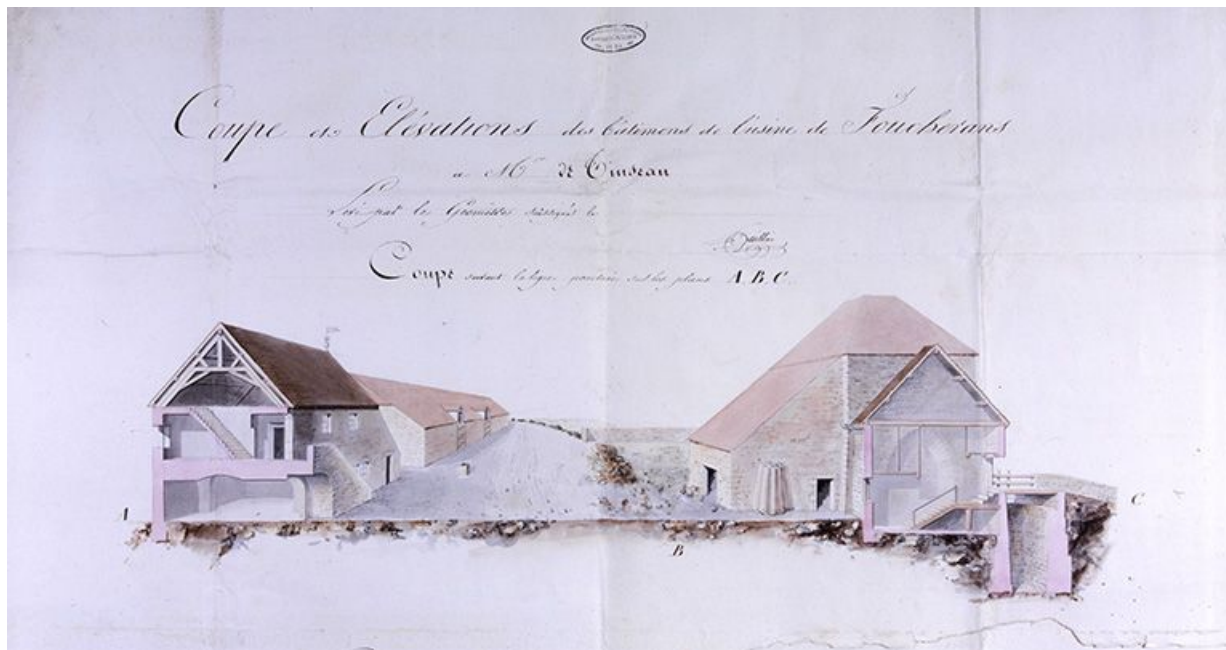 Coupe et Elévations des bâtimens de l'usine de Foucherans
à Mr. de Tinseau
Levé par le Géomètre soussigné le
Coupe suivant la ligne ponctuée sur les plans A. B. C.
A
B
C